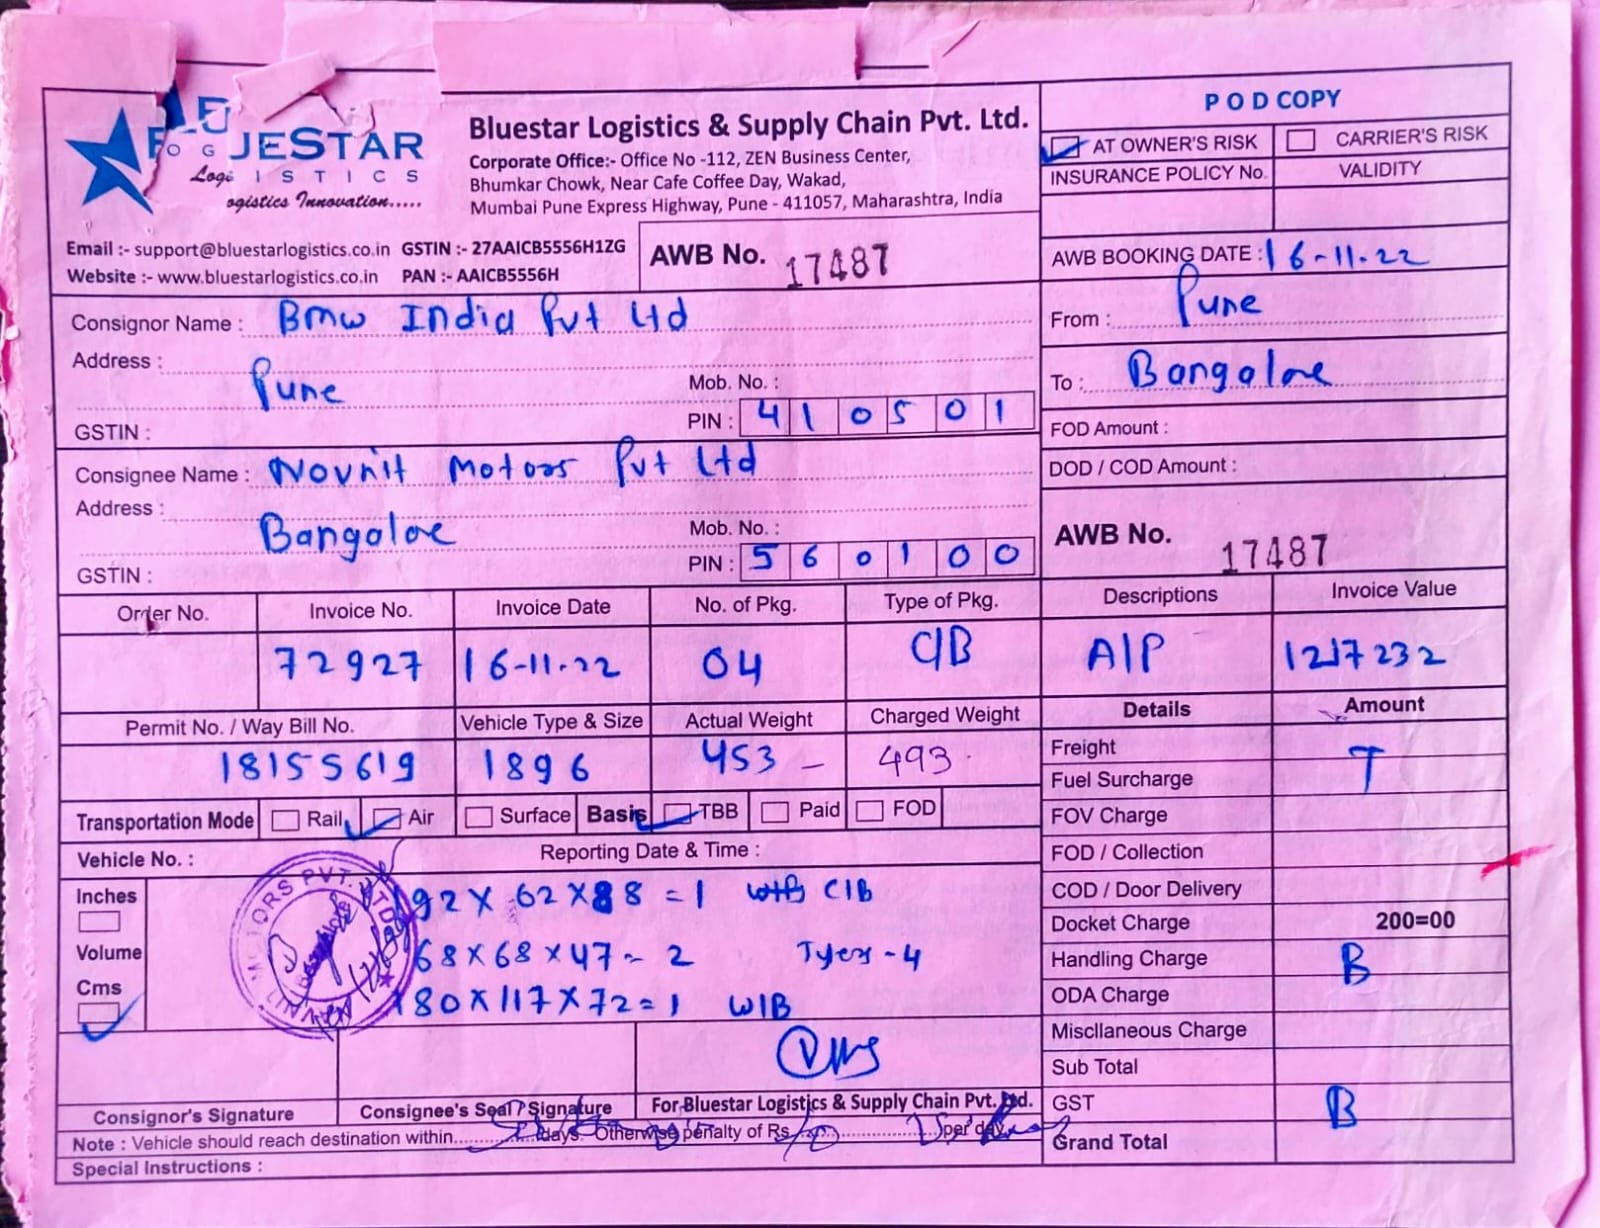 JESTAR
I S T I C S
ogistics Innovation.....
Bluestar Logistics & Supply Chain Pvt. Ltd.
Corporate Office:- Office No -112, ZEN Business Center,
Bhumkar Chowk, Near Cafe Coffee Day, Wakad,
Mumbai Pune Express Highway, Pune - 411057, Maharashtra, India
Email :- support@bluestarlogistics.co.in GSTIN :- 27AAICB5556H1ZG
Website :- www.bluestarlogistics.co.in PAN :- AAICB5556H
AWB No. 17487
P O D COPY
AT OWNER'S RISK CARRIER'S RISK
INSURANCE POLICY No. VALIDITY
AWB BOOKING DATE : 16-11-22
From : Pune
To : Bangalore
FOD Amount :
DOD / COD Amount :
AWB No. 17487
Consignor Name : Bmw India Pvt Ltd
Address : Pune
Mob. No. :
GSTIN : PIN : 410501
Consignee Name : Novnit Motors Pvt Ltd
Address : Bangalore
Mob. No. :
GSTIN : PIN : 560100
Order No. Invoice No. Invoice Date No. of Pkg. Type of Pkg. Descriptions Invoice Value
72927 16-11-22 04 C/B A/P 1217232
Permit No. / Way Bill No. Vehicle Type & Size Actual Weight Charged Weight
18155619 1896 453 - 493
Transportation Mode Rail Air Surface Basis TBB Paid FOD
Vehicle No. : Reporting Date & Time :
Inches
Volume
Cms
192 X 62 X 88 = 1 C/B
68 X 68 X 47 - 2 Tyer - 4
180 X 117 X 72 = 1 W/B
Details Amount
Freight T
Fuel Surcharge
FOV Charge
FOD / Collection
COD / Door Delivery
Docket Charge 200=00
Handling Charge B
ODA Charge
Miscllaneous Charge
Sub Total
GST B
Grand Total
Consignor's Signature Consignee's Seal / Signature For Bluestar Logistics & Supply Chain Pvt. Ltd.
Note : Vehicle should reach destination within days. Otherwise penalty of Rs per day
Special Instructions :